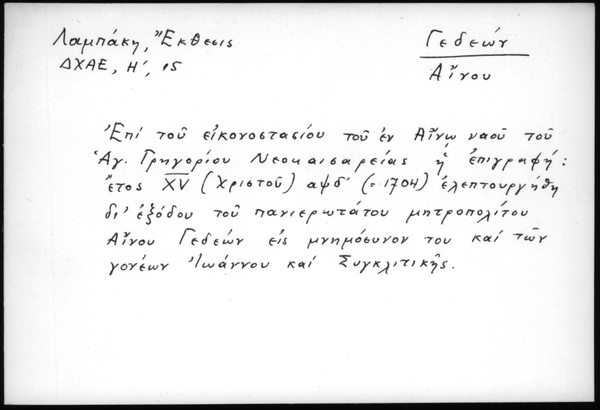 Λαμπάκη, Ἔκθεσις
ΔΧΑΕ, Η', 15
Γεδεών
Αἴνου
Ἐπί τοῦ εἰκονοστασίου τοῦ ἐν Αἴνῳ ναοῦ τοῦ
Ἁγ. Γρηγορίου Νεοκαισαρείας ἡ ἐπιγραφή:
ἔτος XV (Χριστοῦ) αψδ' (=1704) ἐλεπτουργήθη
δι' ἐξόδου τοῦ πανιερωτάτου μητροπολίτου
Αἴνου Γεδεών εἰς μνημόσυνον του καί τῶν
γονέων Ἰωάννου καί Συγκλιτικῆς.